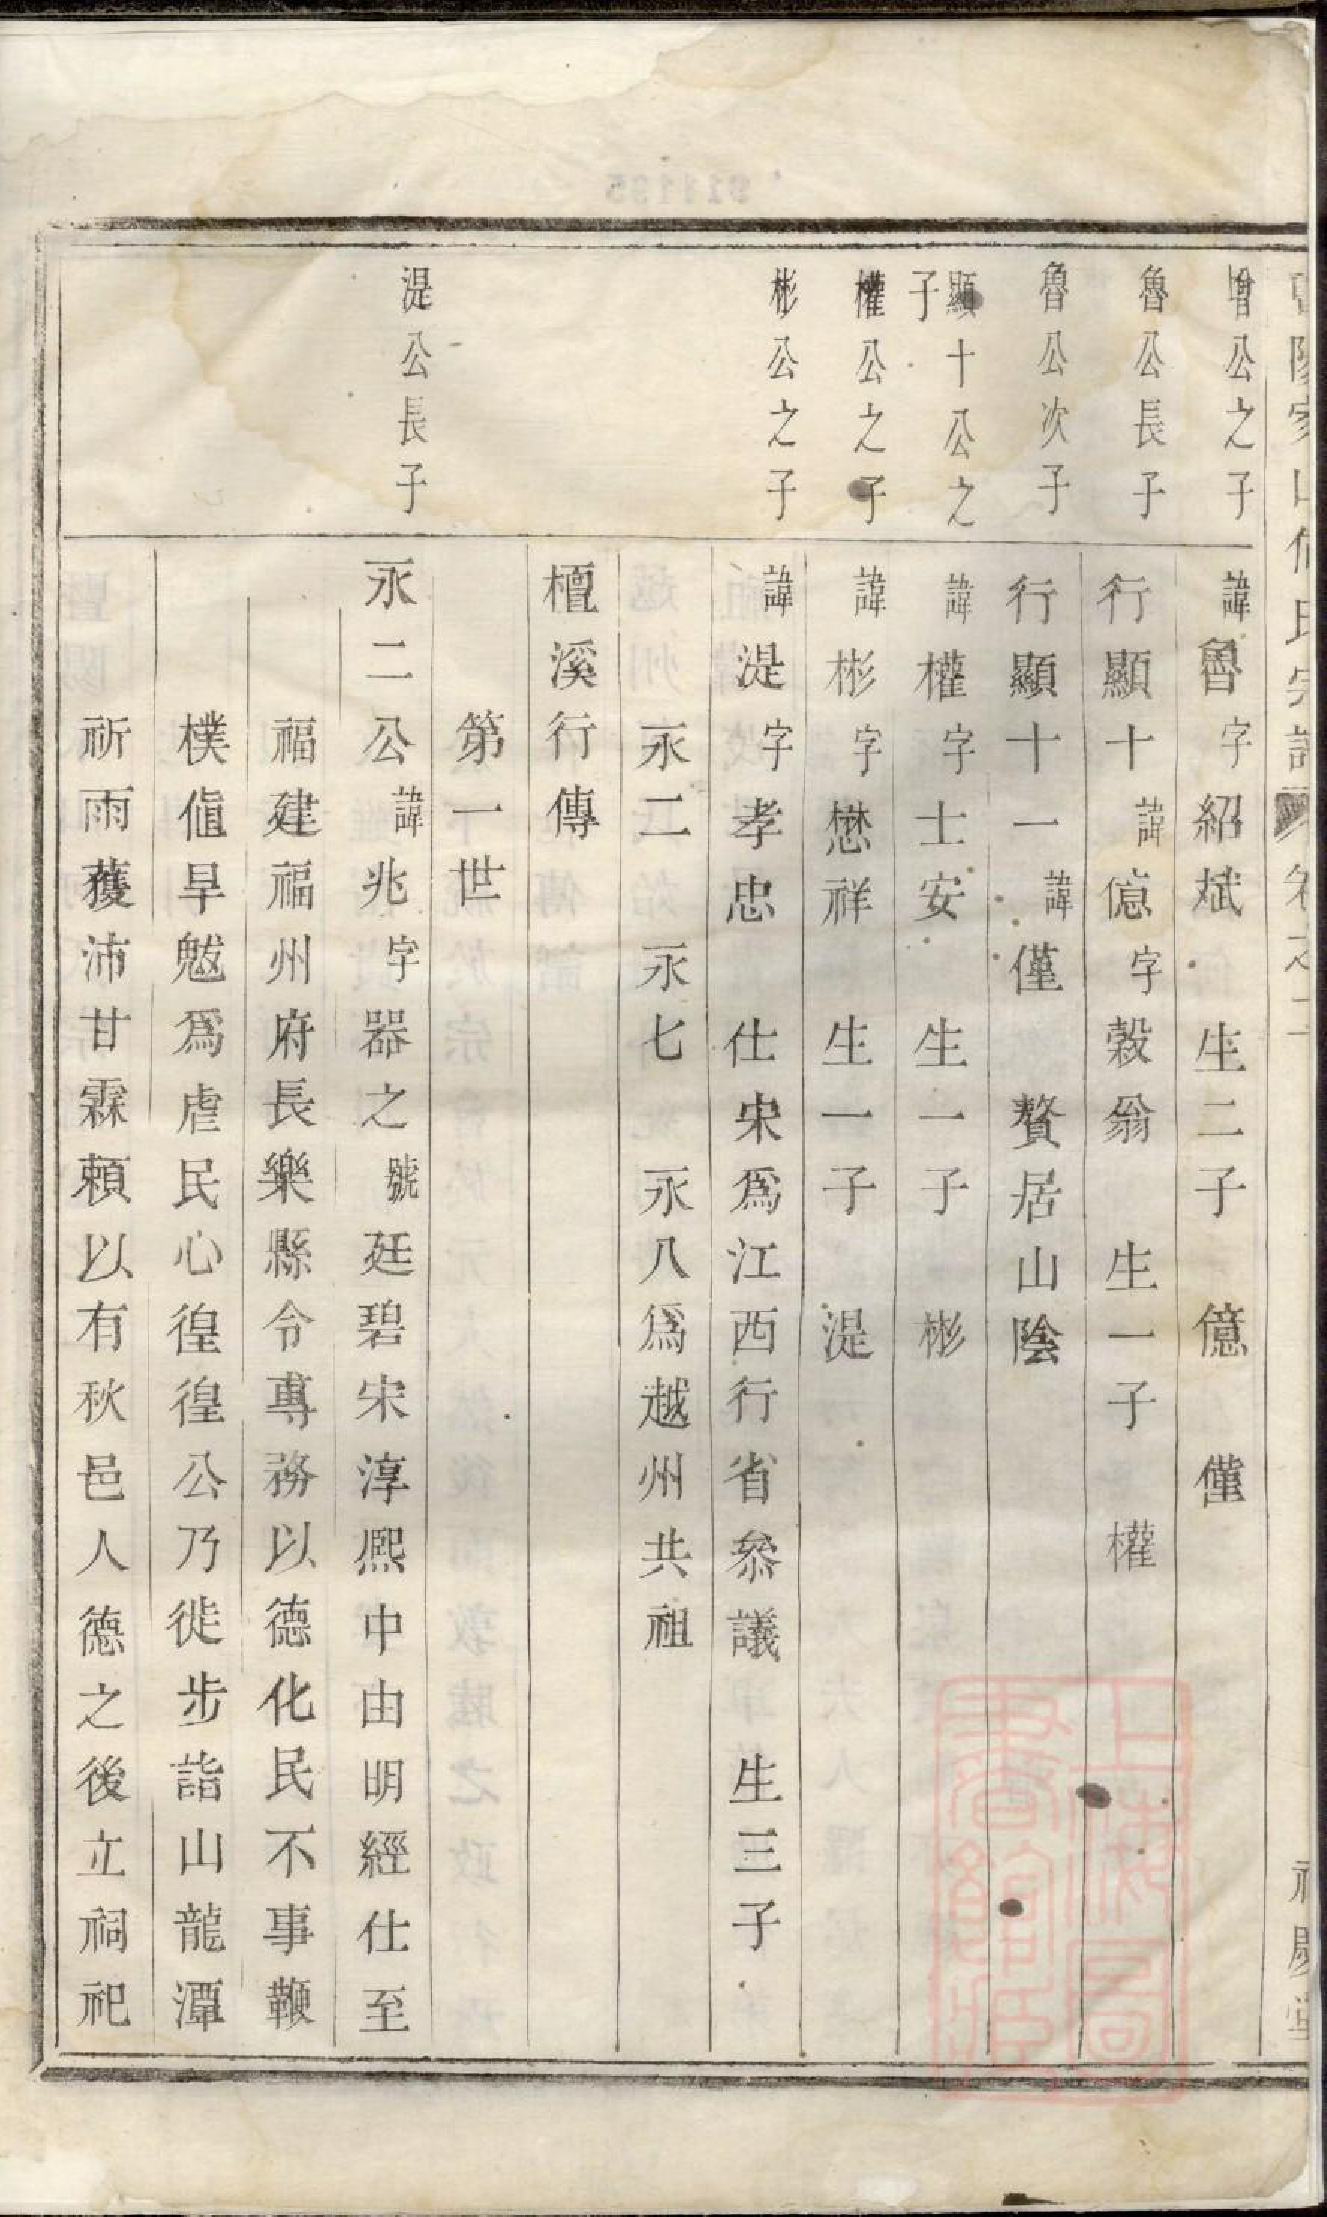 家山何氏宗譜 卷之二
增公之子 諱魯字紹斌 生二子 億 僅
魯公長子 行顯十諱億字穀翁 生一子 權
魯公次子 行顯十一諱僅 贅居山陰
顯十公之子 諱權字士安 生一子 彬
權公之子 諱彬字懋祥 生一子 湜
彬公之子 諱湜字孝忠 仕宋爲江西行省叅議 生三子
永二 永七 永八爲越州共祖
檀溪行傳
第一世
湜公長子 永二公諱兆字器之號廷碧宋淳熙中由明經仕至
福建福州府長樂縣令專務以德化民不事鞭
樸値旱魃爲虐民心徨徨公乃徙步詣山龍潭
祈雨獲沛甘霖頼以有秋邑人德之後立祠祀
上海圖書館藏